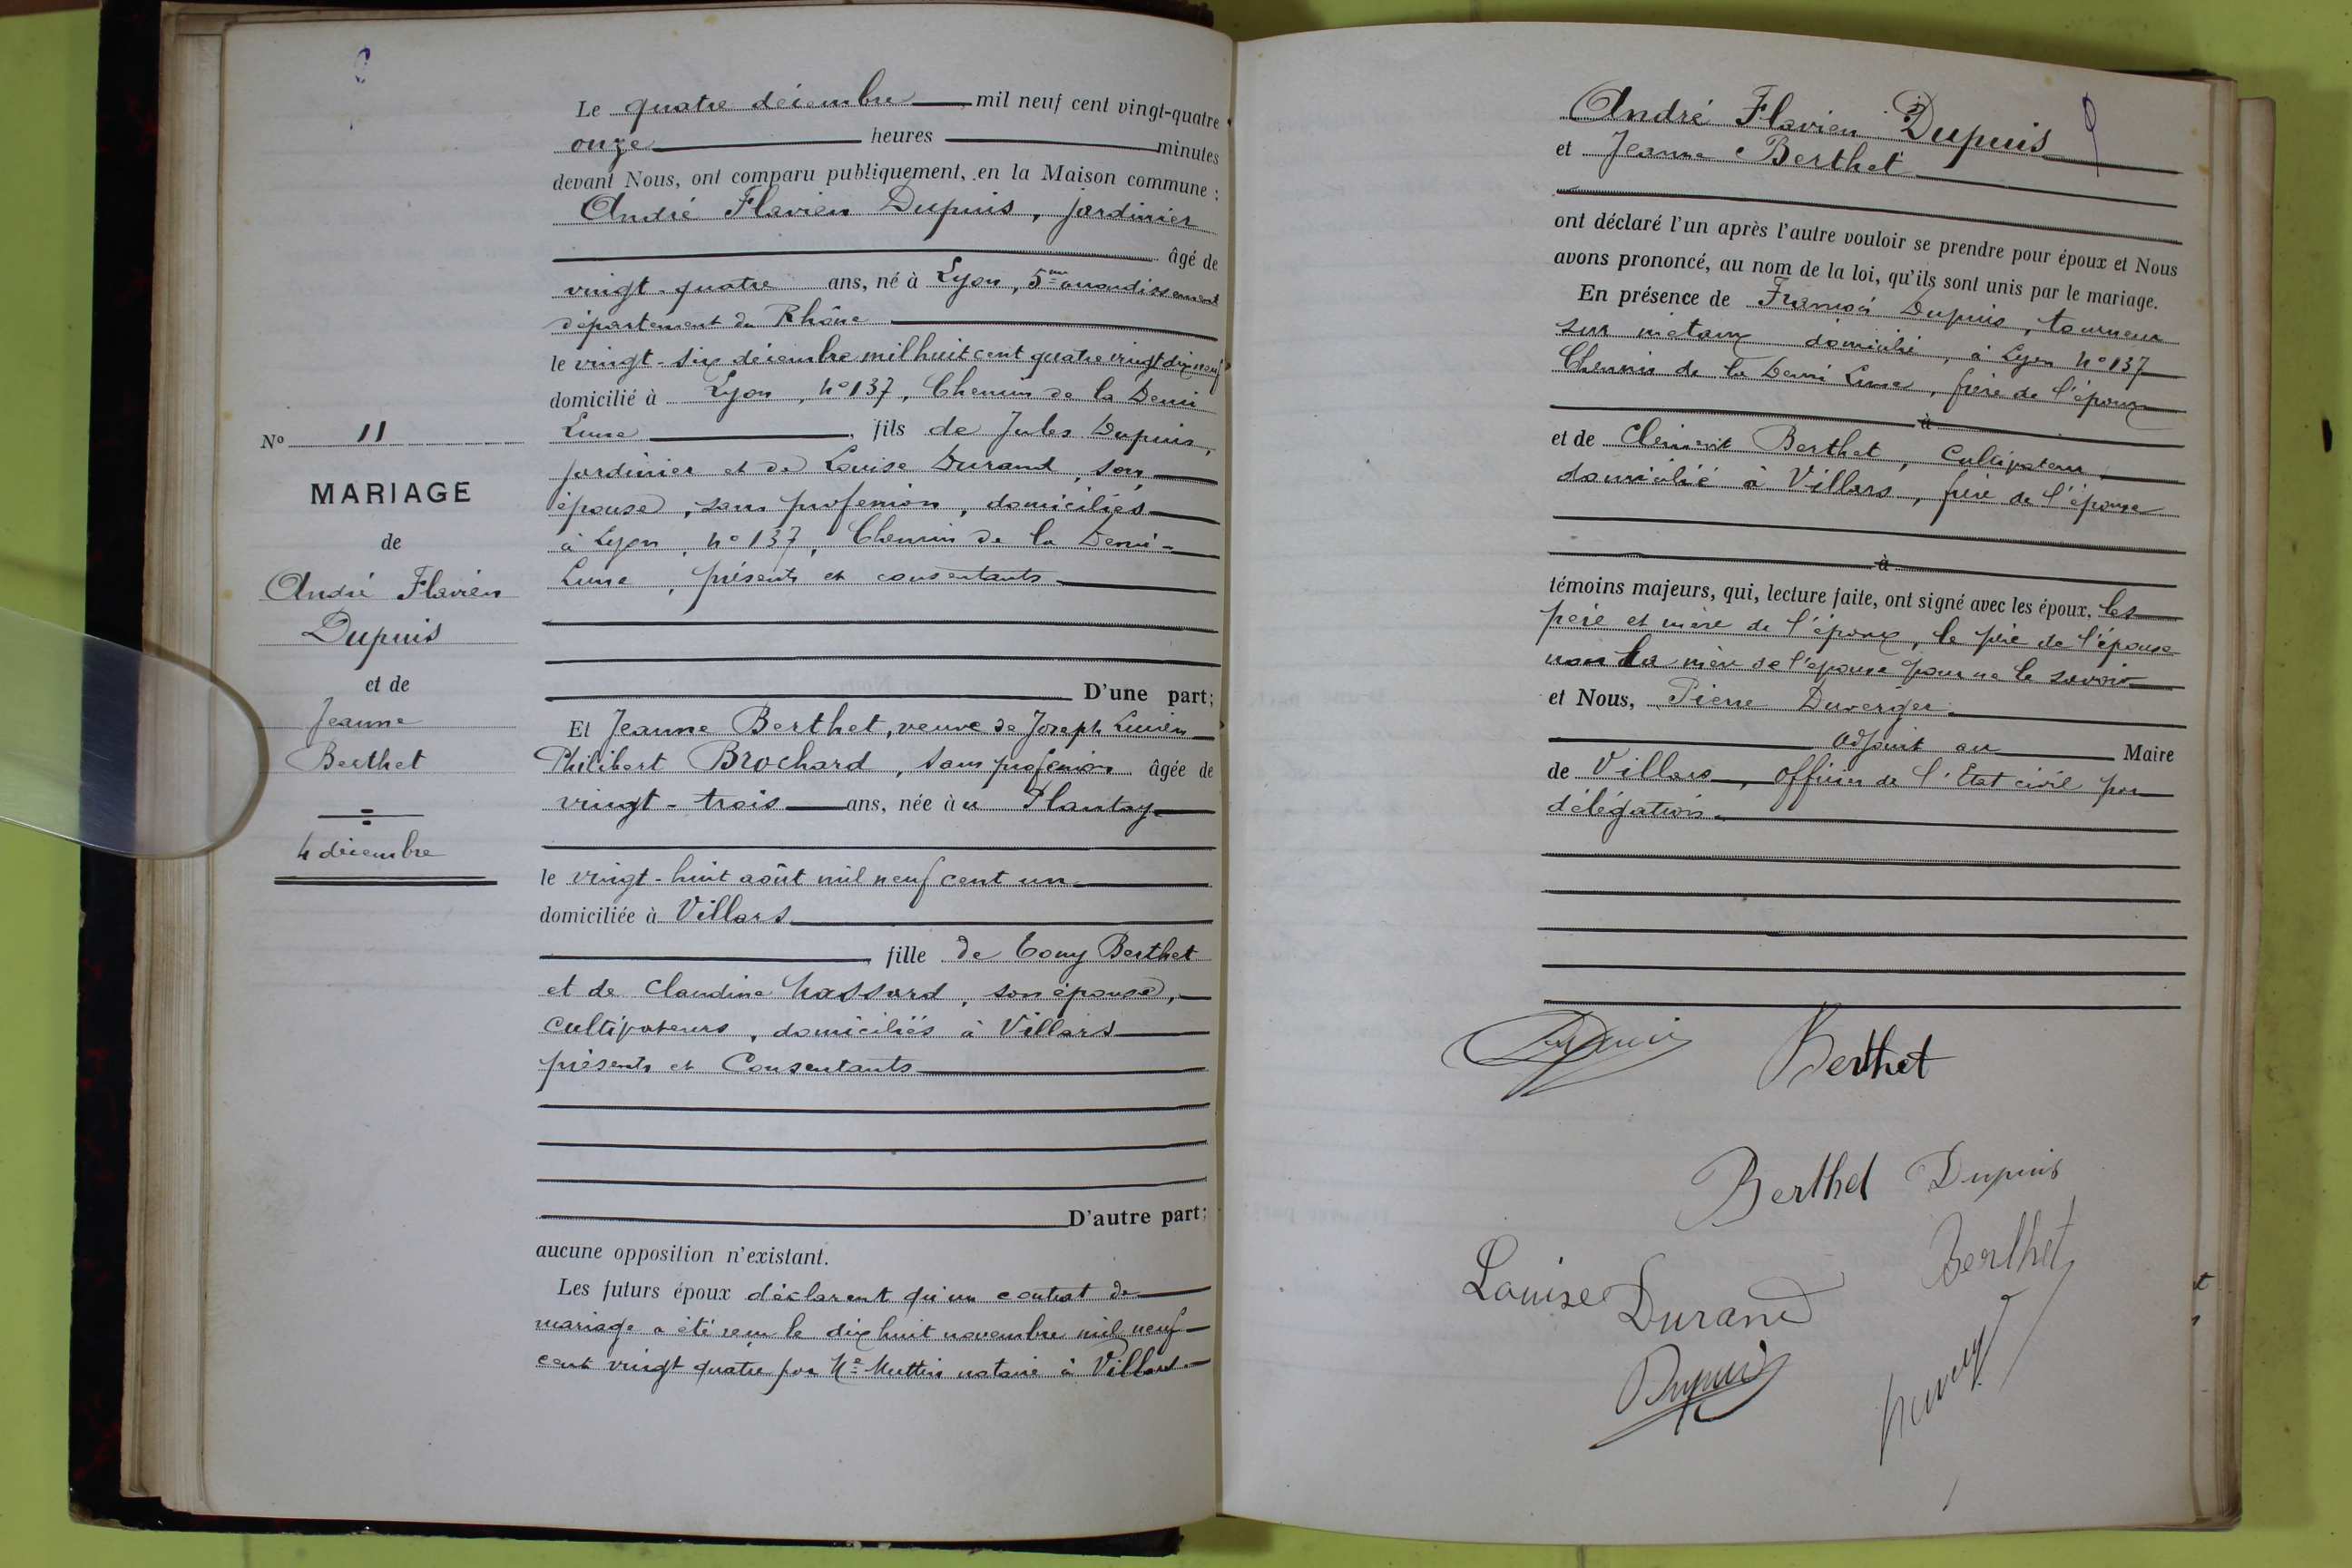 Le quatre décembre mil neuf cent vingt-quatre
onze heures minutes
devant Nous, ont comparu publiquement, en la Maison commune :
André Flavien Dupuis, jardinier
âgé de
vingt-quatre ans, né à Lyon, 5me arrondissement
département du Rhône
le vingt-six décembre mil huit cent quatre vingt dix neuf
domicilié à Lyon, No 137, Chemin de la Demi
Lune, fils de Jules Dupuis,
jardinier et de Louise Durand, son
épouse, sans profession, domiciliés
à Lyon, No 137, Chemin de la Demi-
Lune, présents et consentants
D'une part;
No 11
MARIAGE
de
André Flavien
Dupuis
et de
Jeanne
Berthet
4 décembre
Et Jeanne Berthet, veuve de Joseph Lucien
Philibert Brochard, sans profession âgée de
vingt-trois ans, née àu Plantay
le vingt-huit août mil neuf cent un
domiciliée à Villars
fille de Tony Berthet
et de Claudine , son épouse,
cultivateurs, domiciliés à Villars
présents et Consentants
D'autre part;
aucune opposition n'existant.
Les futurs époux déclarent qu'un contrat de
mariage a été reçu le dix huit novembre mil neuf
cent vingt quatre par Me Muttin notaire à Villars
André Flavien Dupuis
et Jeanne Berthet
ont déclaré l'un après l'autre vouloir se prendre pour époux et Nous
avons prononcé, au nom de la loi, qu'ils sont unis par le mariage.
En présence de François Dupuis, tourneur
sur métaux domicilié, à Lyon No 137
Chemin de la Demi Lune, frère de l'époux
à
et de Clément Berthet, Cultivateur,
domicilié à Villars, frère de l'épouse
à
témoins majeurs, qui, lecture faite, ont signé avec les époux, les
père et mère de l'époux, le père de l'épouse
non la mère de l'épouse pour ne le savoir
et Nous, Pierre Duverger
adjoint au Maire
de Villars, officier de l'État civil par
délégation
Dupuis Berthet
Berthet Dupuis
Louise Durand Berthet
Dupuis Duverger